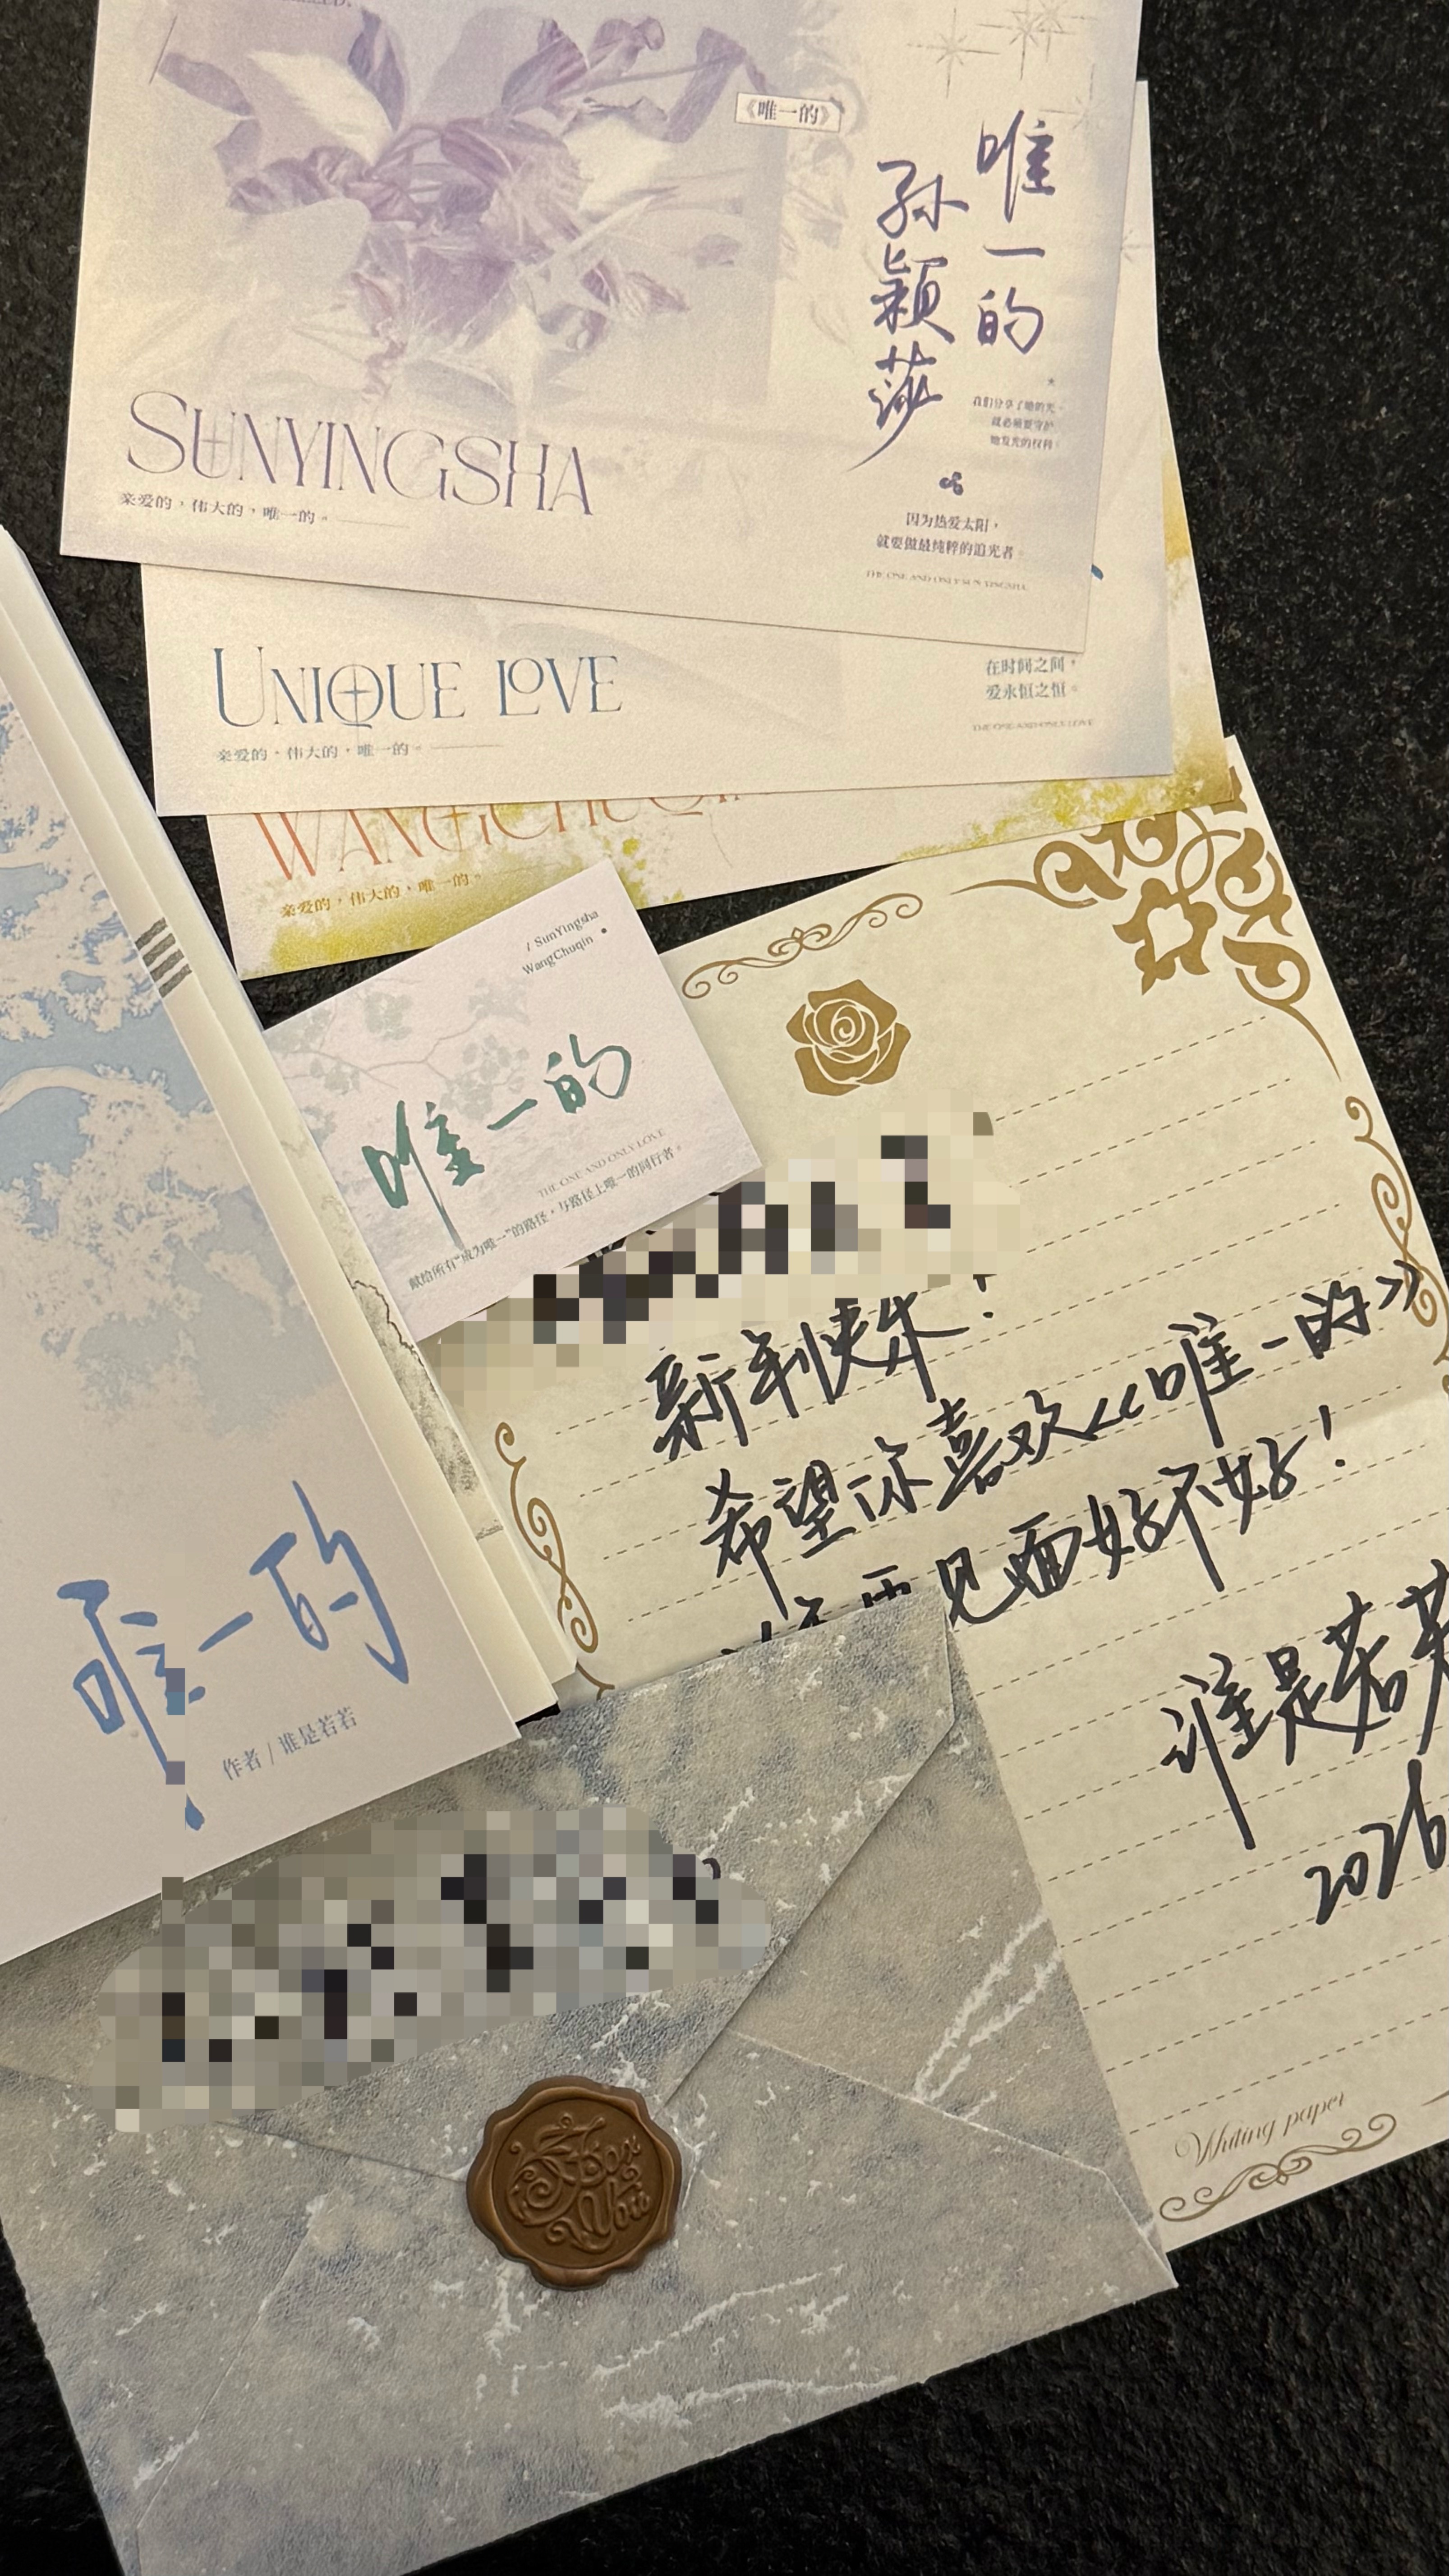 《唯一的》
唯一的
孙颖莎
我们分享了她的光，
就必须要守护
她发光的权利
SUNYINGSHA
亲爱的，伟大的，唯一的。
因为热爱太阳，
就要做最纯粹的追光者。
THE ONE AND ONLY SUN YINGSHA
UNIQUE LOVE
亲爱的，伟大的，唯一的。
在时间之间，
爱永恒之恒。
THE ONE AND ONLY LOVE
WANGCHUQI
亲爱的，伟大的，唯一的。
/ SunYingsha
WangChuqin
唯一的
THE ONE AND ONLY LOVE
献给所有“成为唯一”的路径，与路径上唯一的同行者。
新年快乐！
希望你喜欢《唯一的》
再见面好不好！
谁是若若
2026
唯一的
作者 / 谁是若若
For
You
Writing paper